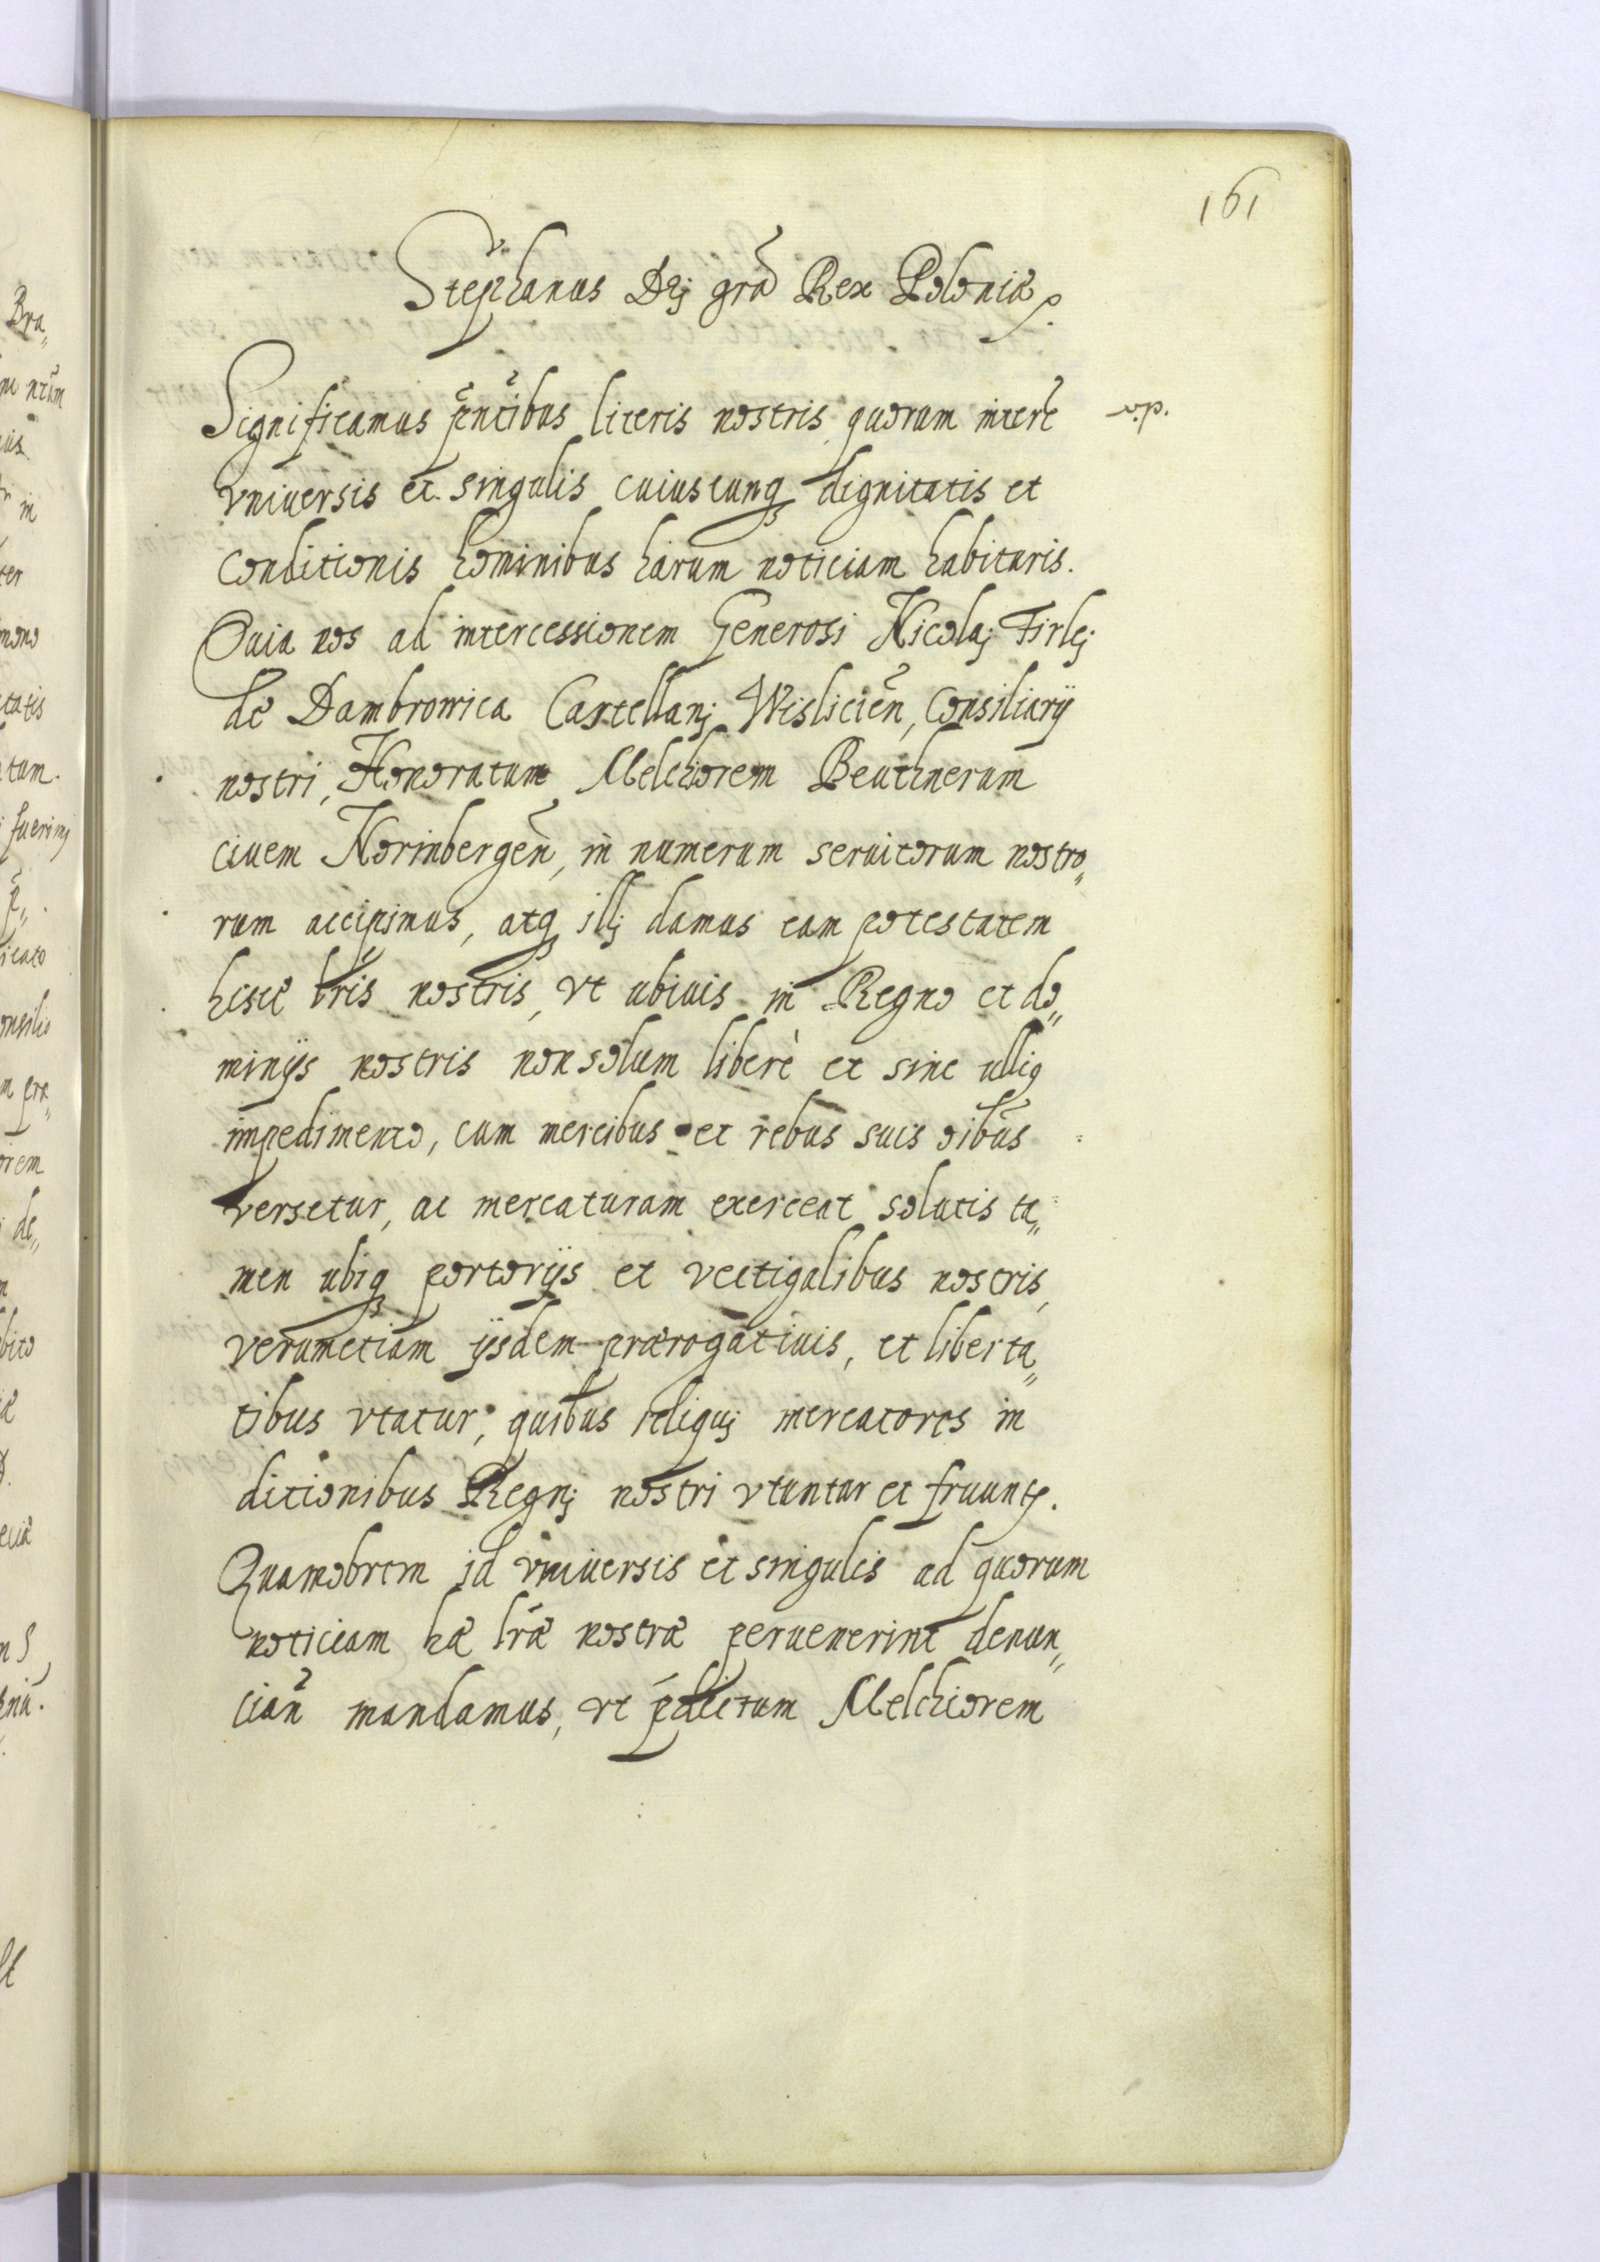 161
Stephanus Dej grã Rex Poloniæ
Significamus p̃ntibus literis nostris quorum interẽ
vniuersis et singulis cuiuscunq dignitatis et
conditionis hominibus harum noticiam habituris.
Quia nos ad intercessionem Generosi Nicolaj Firlej
de Dambrowica Castellanj Wislicieñ, Consiliarij
nostri, Honoratum Melchiorem Beuthnerum
ciuem Norinbergeñ, in numerum seruitorum nostro„
rum accipimus, atq illj damus eam potestatem
hisce lr̃is nostris, vt ubiuis in Regno et do„
minijs nostris non solum liberè et sine ullio
impedimento, cum mercibus et rebus suis oĩbus
versetur, ac mercaturam exerceat solutis ta„
men ubiq portorijs et vectigalibus nostris,
verumetiam ijsdem prærogatiuis, et liberta„
tibus vtatur, quibus reliquj mercatores in
ditionibus Regnj nostri vtuntur et fruunt.
Quamobrem id vniuersis et singulis ad quorum
noticiam hæ lr̃æ nostræ peruenerint denun„
ciañ mandamus, vt p̃dictum Melchiorem